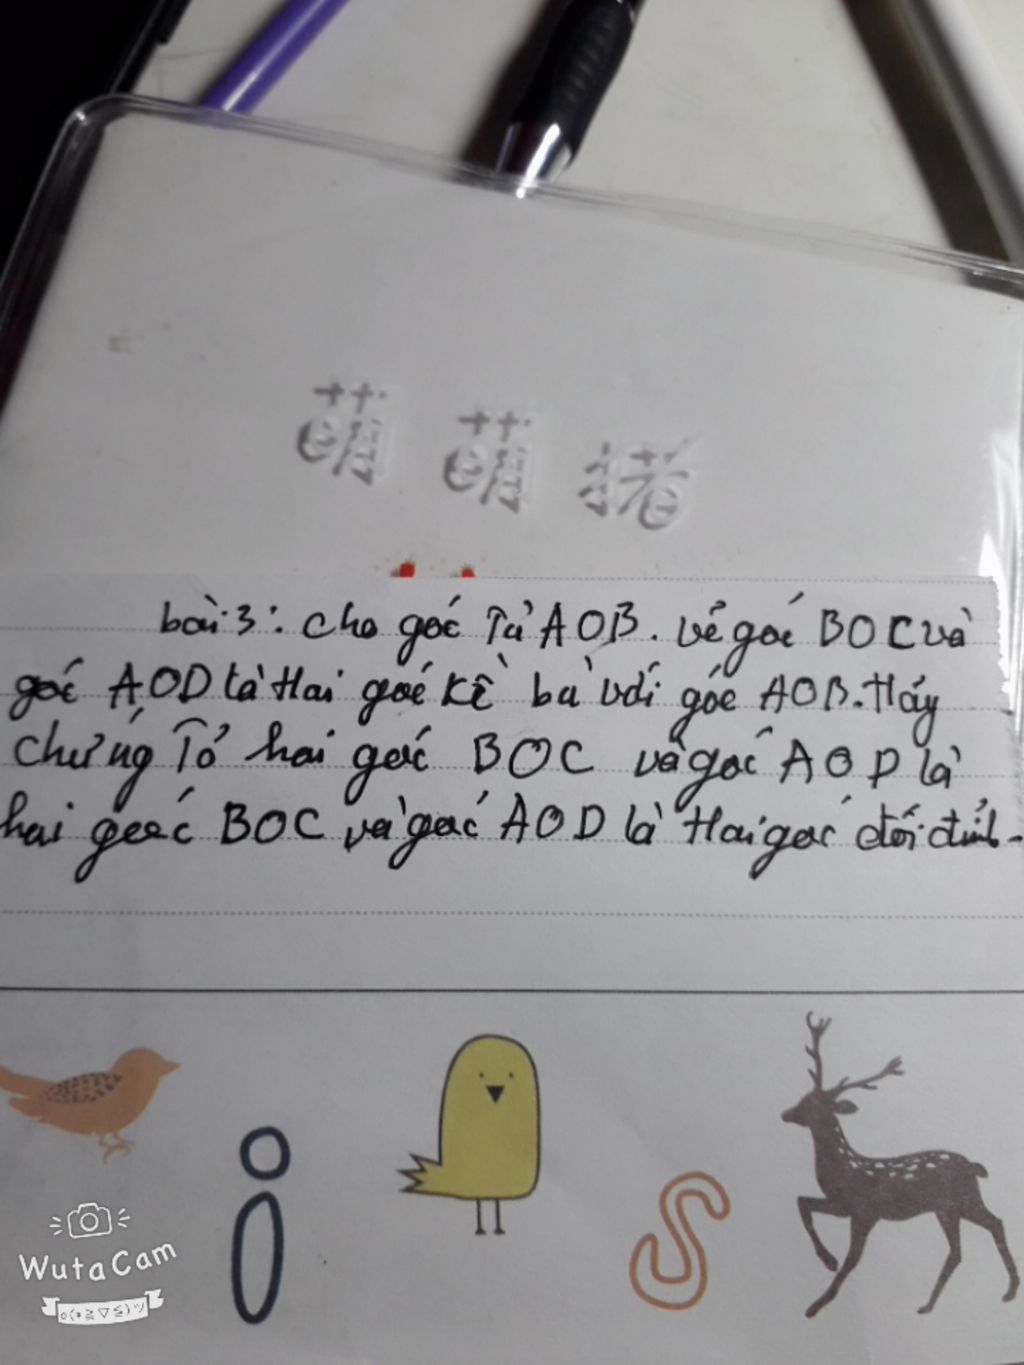 萌萌猪
bài 3: cho góc Tù AOB. vẽ góc BOC và
góc AOD là Hai góc kề bù với góc AOB. Hãy
Chứng Tỏ hai góc BOC và góc AOD là
hai góc BOC và góc AOD là Hai góc đối đỉnh.
WutaCam
o(*≧▽≦)ツ